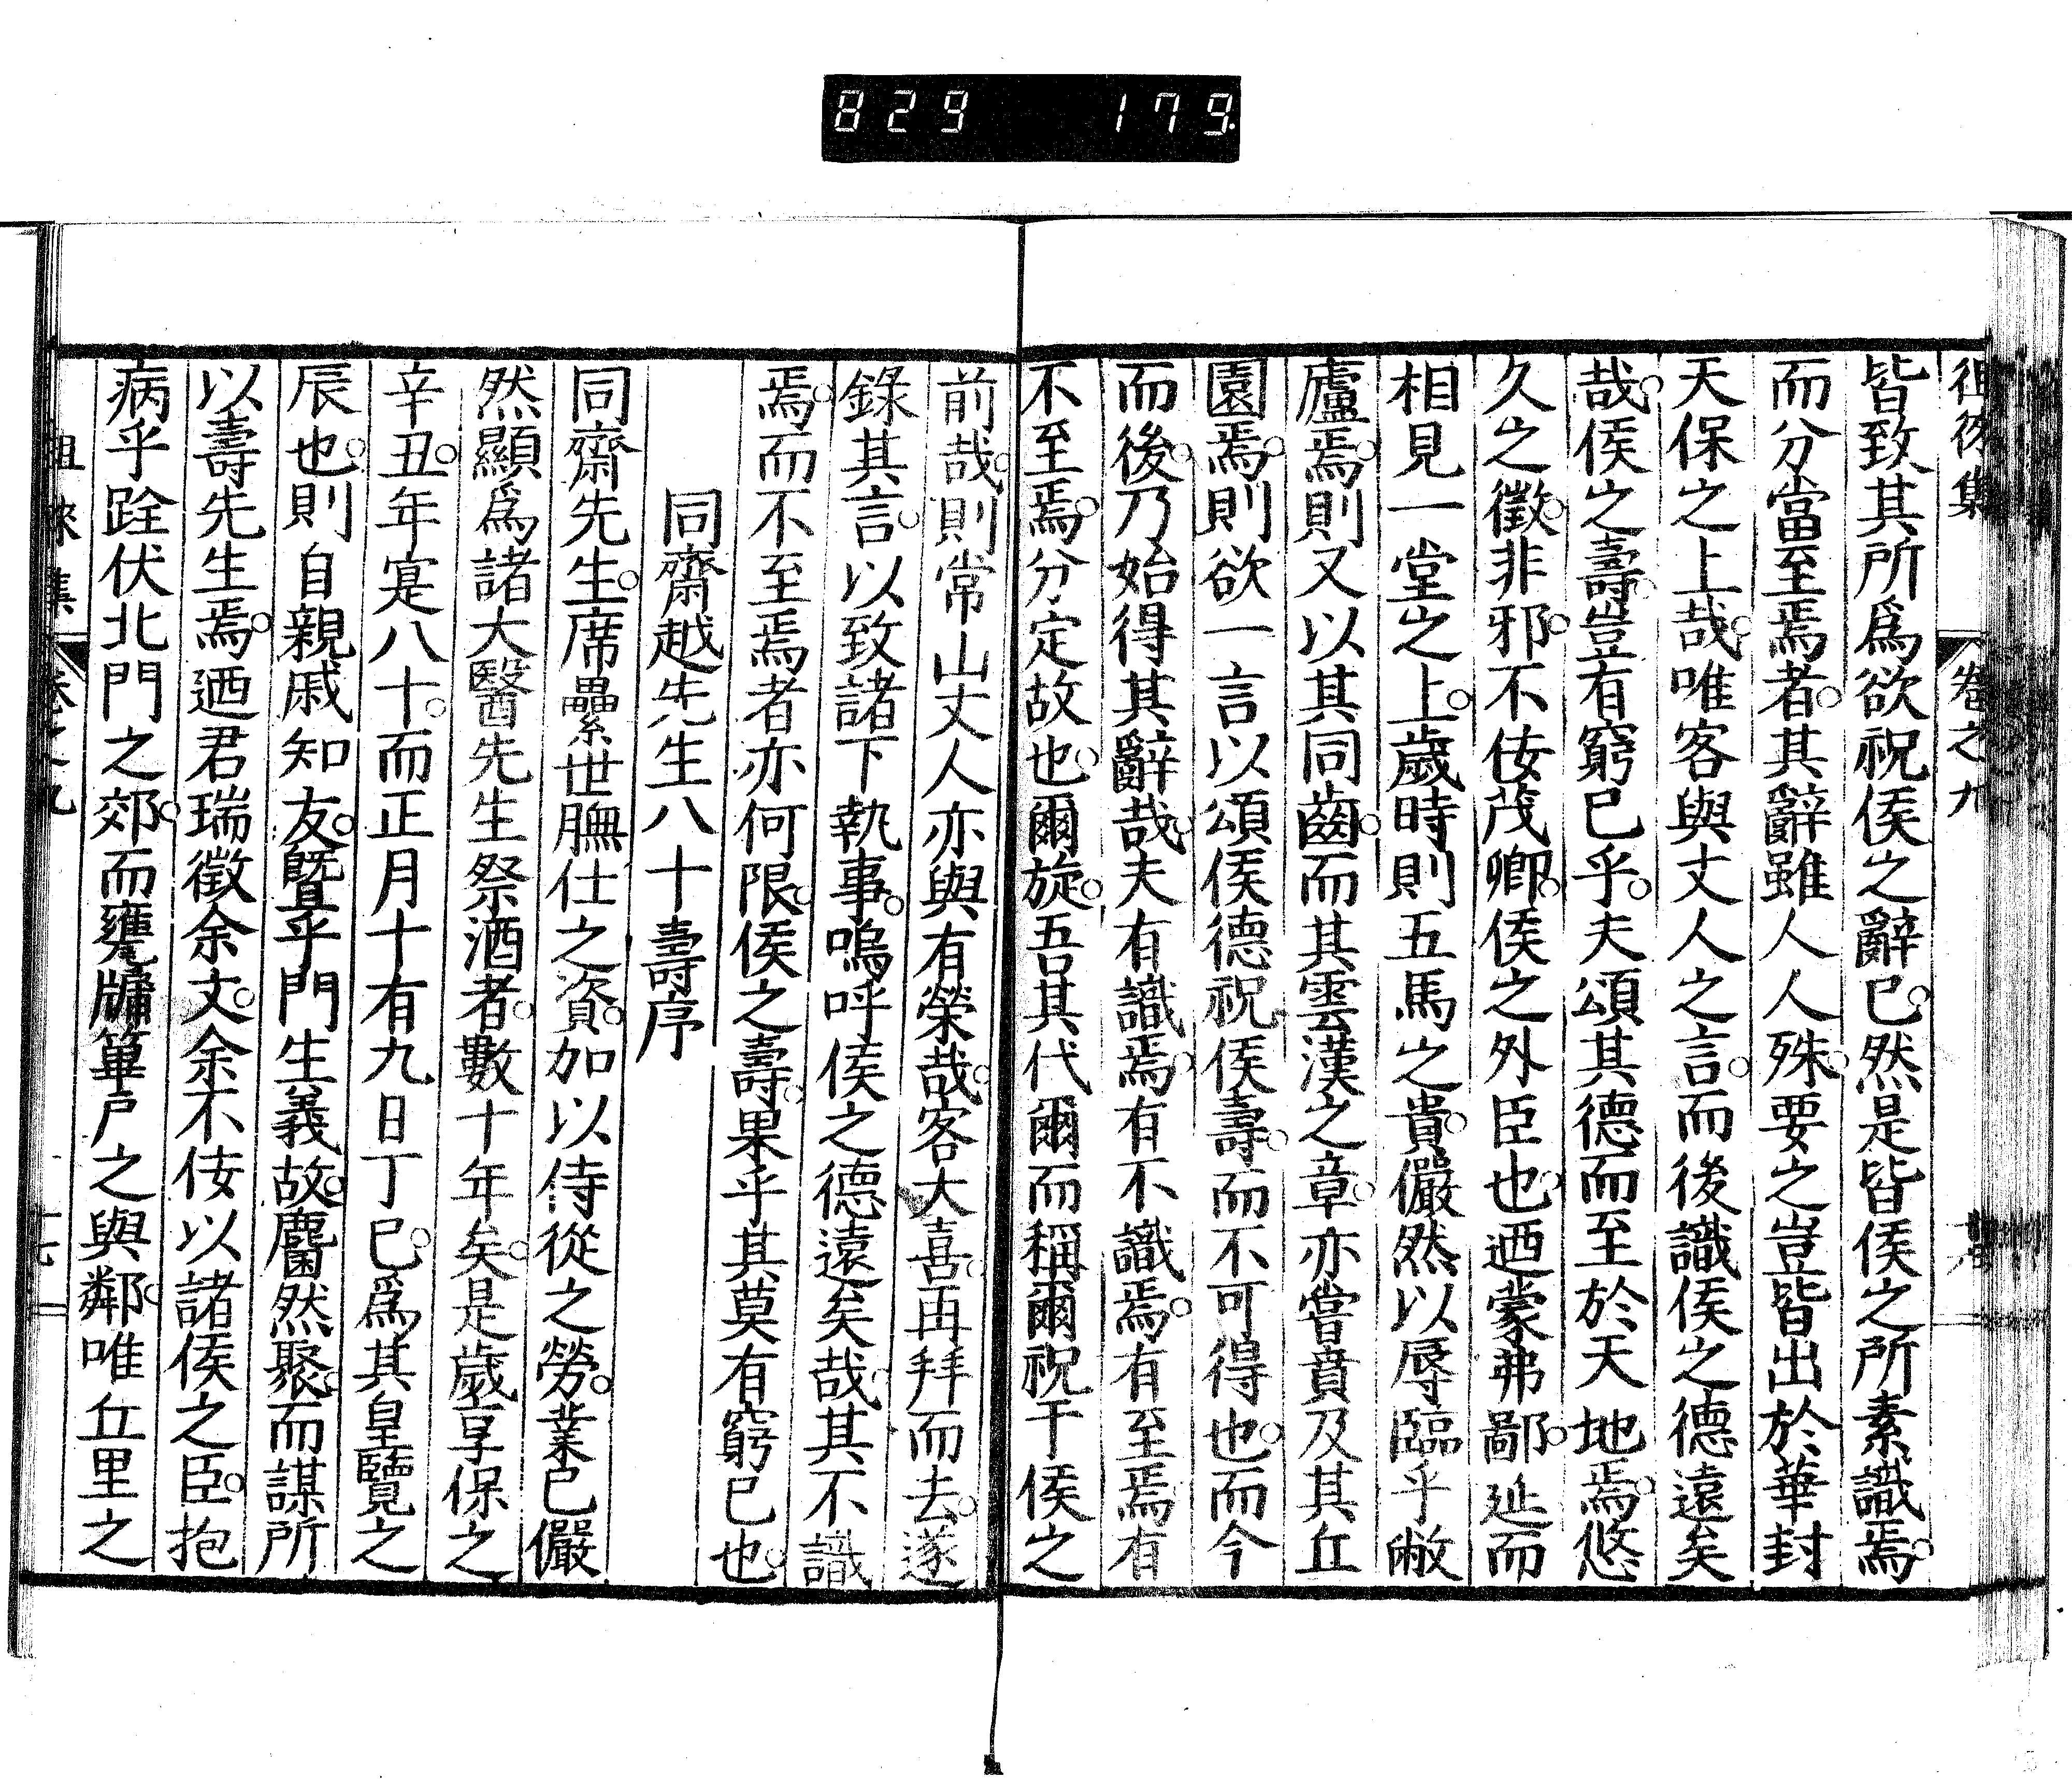 829 179.
徂徠集 卷之九
皆致其所爲欲祝侯之辭已。然是皆侯之所素識焉。
而分當至焉者。其辭雖人人殊。要之豈皆出於華封
天保之上哉。唯客與丈人之言。而後識侯之德遠矣
哉。侯之壽。豈有窮已乎。夫頌其德而至於天地焉。悠
久之徵。非邪。不佞茂卿。侯之外臣也。迺蒙弗鄙。延而
相見一堂之上。歲時則五馬之貴。儼然以辱臨乎敝
廬焉。則又以其同齒。而其雲漢之章。亦嘗賁及其丘
園焉。則欲一言以頌侯德祝侯壽。而不可得也。而今
而後。乃始得其辭哉。夫有識焉。有不識焉。有至焉。有
不至焉。分定故也。爾旋。吾其代爾而稱爾祝于侯之
前哉。則常山丈人亦與有榮哉。客大喜。再拜而去。遂
錄其言。以致諸下執事。嗚呼侯之德遠矣哉。其不識
焉。而不至焉者亦何限。侯之壽。果乎其莫有窮已也。
同齋越先生八十壽序
同齋先生。席纍世膴仕之資。加以侍從之勞。業已儼
然顯爲諸大醫先生祭酒者。數十年矣。是歲享保之
辛丑。年寔八十。而正月十有九日丁巳。爲其皇覽之
辰也。則自親戚知友。曁乎門生義故。麕然聚。而謀所
以壽先生焉。迺君瑞徵余文。余不佞以諸侯之臣。抱
病乎跧伏北門之郊。而甕牖篳戶之與鄰。唯丘里之
徂徠集 卷之九